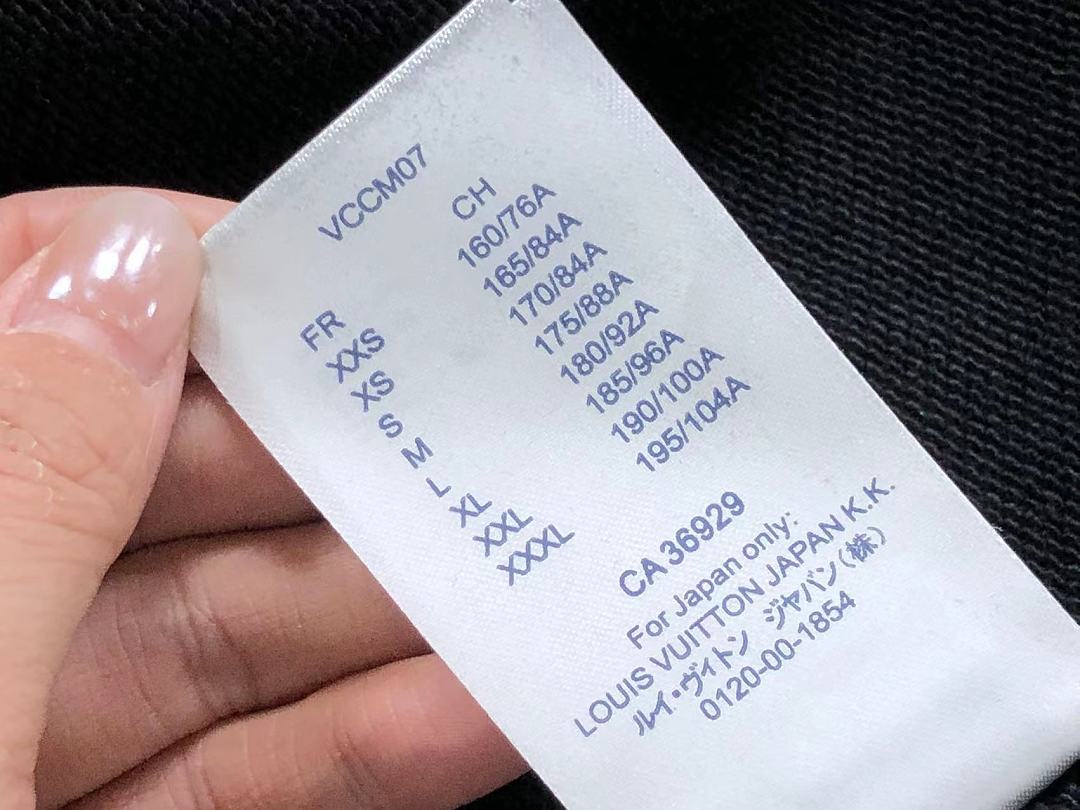 VCCM07
FR CH
XXS 160/76A
XS 165/84A
S 170/84A
M 175/88A
L 180/92A
XL 185/96A
XXL 190/100A
XXXL 195/104A
CA 36929
For Japan only:
LOUIS VUITTON JAPAN K.K.
ルイ・ヴィトン ジャパン(株)
0120-00-1854